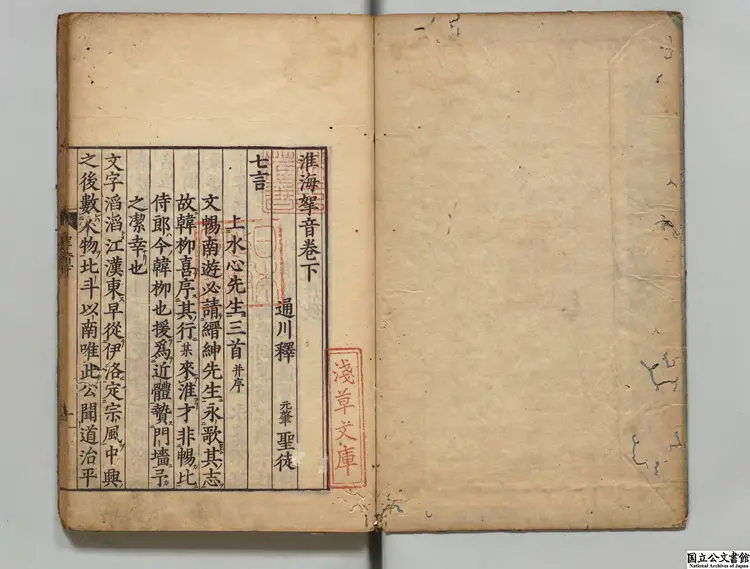 淮海挐音卷下
通川釋 元肇 聖徒
七言
上水心先生三首 并序
文暢南遊必請縉紳先生永歌其志
故韓柳喜序其行某來淮才非暢比
侍郎今韓柳也援爲近體贄門墻予
之潔幸也
文字滔滔江漢東早從伊洛定宗風中興
之後數人物比斗以南唯此公聞道治平
淺草文庫
国立公文書館
National Archives of Japan